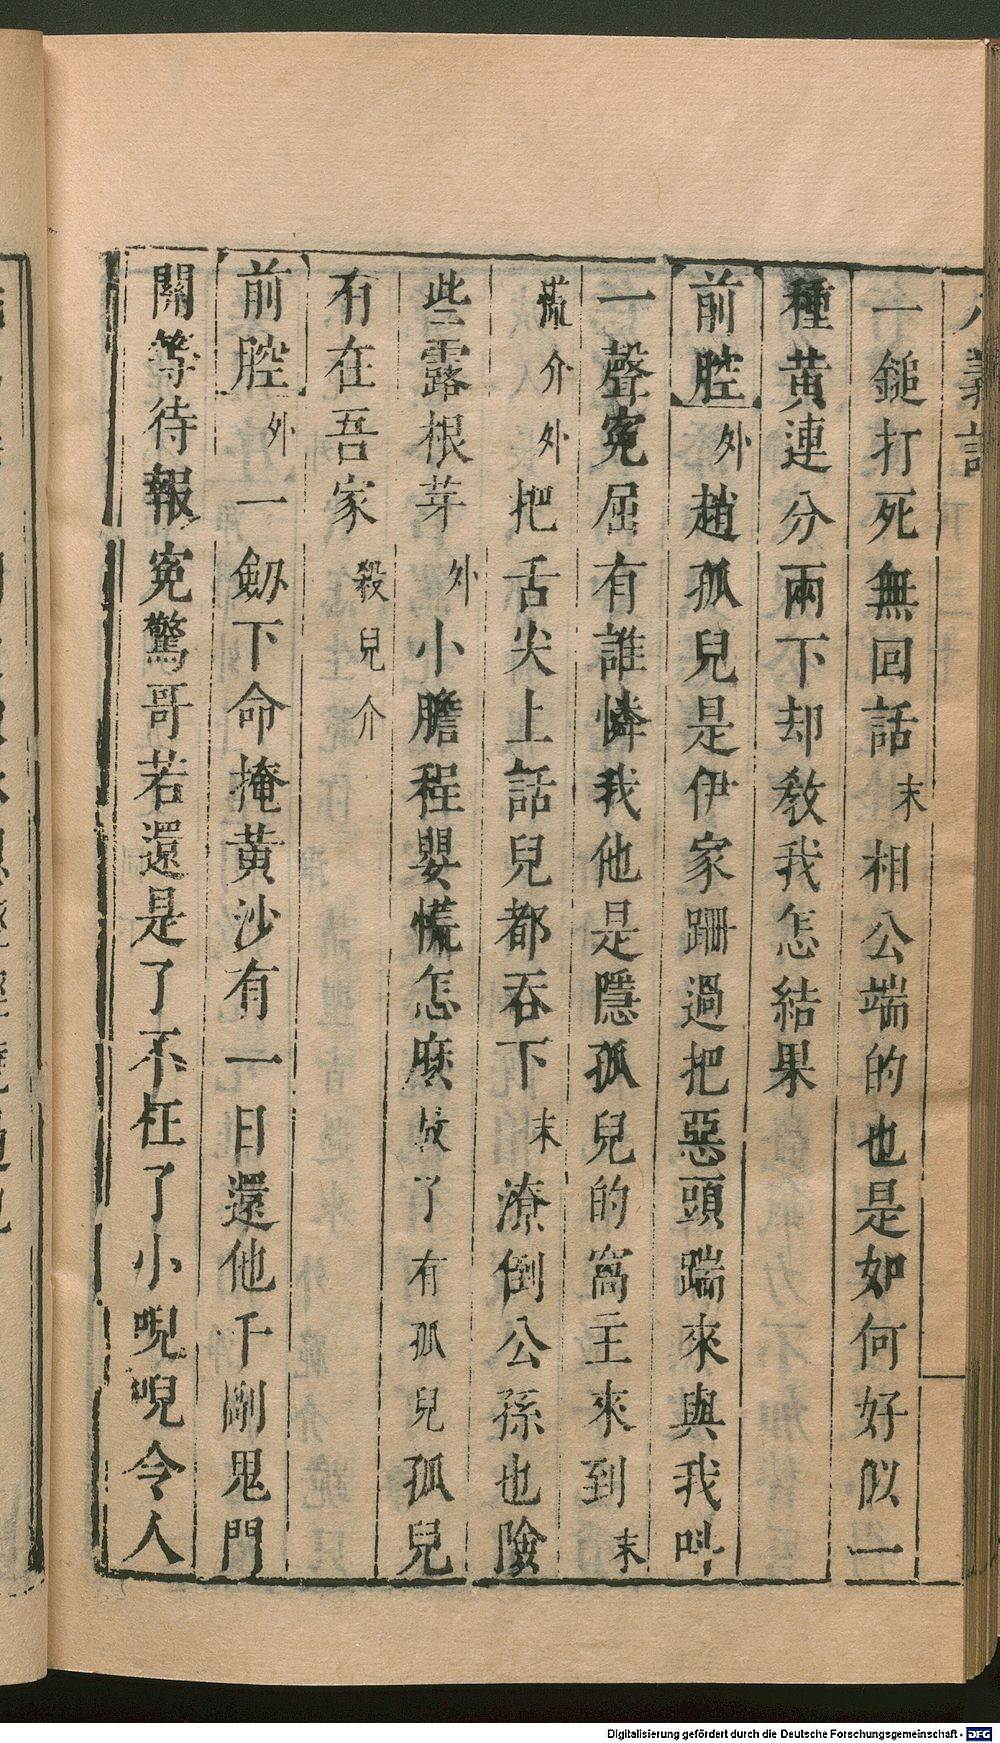 八義記
一鎚打死無回話末相公端的也是如何好似一
種黄連分兩下却教我怎結果
前腔外趙孤兒是伊家跚過把惡頭踹來與我叫
一聲寃屈有誰憐我他是隱孤兒的窩主來到末
慌介外把舌尖上話兒都吞下末潦倒公孫也險
些露根芽外小膽程嬰慌怎麽放了有孤兒孤兒
有在吾家殺兒介
前腔外一劔下命掩黄沙有一日還他千剮鬼門
關等待報寃驚哥若還是了不枉了小唲唲令人
Digitalisierung gefördert durch die Deutsche Forschungsgemeinschaft - DFG